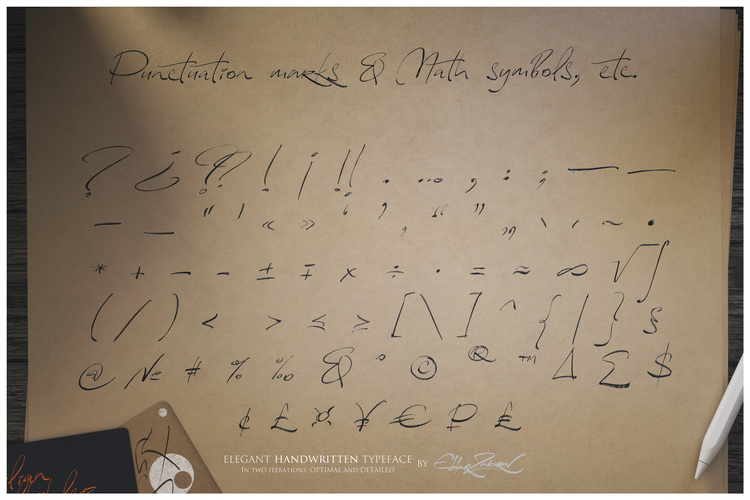 Punctuation marks & Math symbols, etc.
? ¿ ⁇ ! ¡ ‼ . … , : ; — –
- _ " ' « » ‘ ’ , “ ” „ ` ´ ~ •
* + − - ± ∓ × ÷ · = ≈ ∞ √ ∫
( / ) < > ≤ ≥ [ \ ] ^ { | } §
@ № # % ‰ & ° © ® ™ Δ Σ $
¢ £ ¤ ¥ €
ELEGANT HANDWRITTEN TYPEFACE BY
IN TWO ITERATIONS, OPTIMAL AND DETAILED